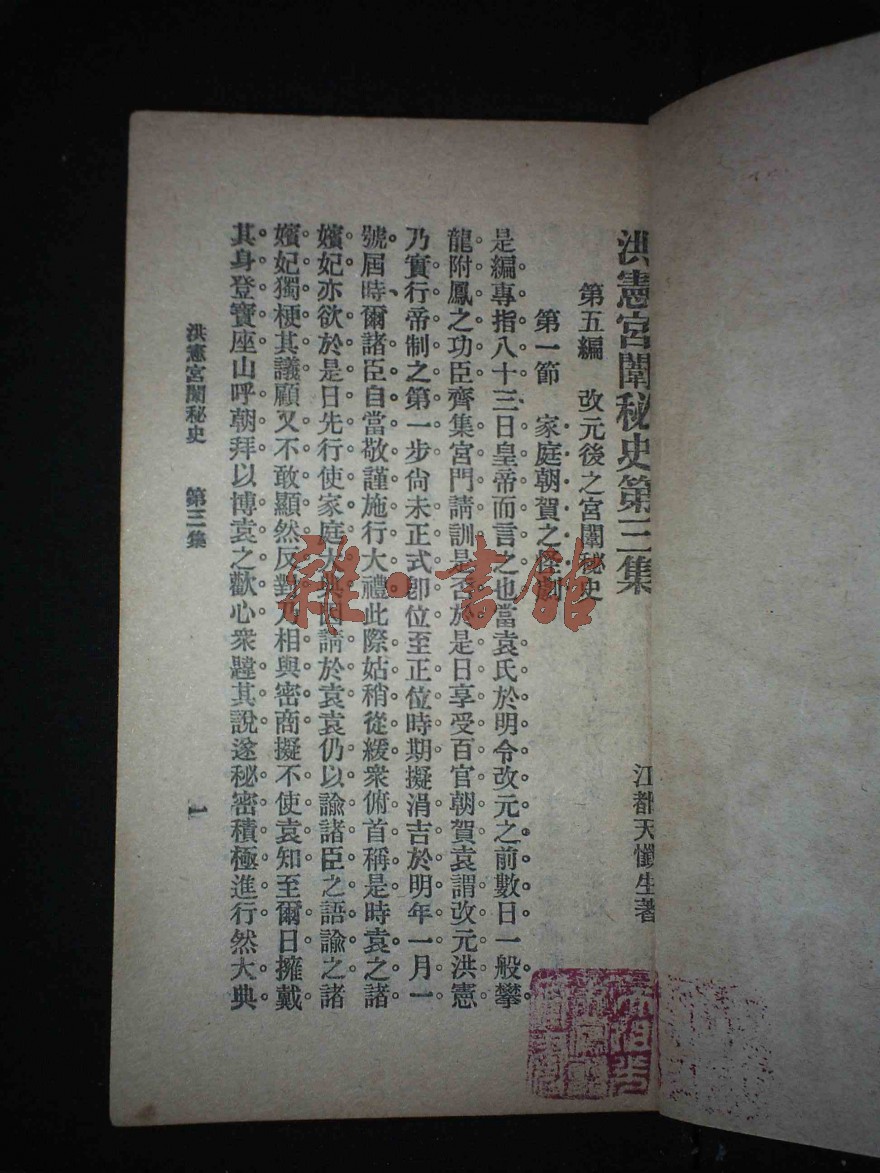 洪憲宮闈秘史第三集
江都天懺生著
第五編　改元後之宮闈秘史
第一節　家庭朝賀之怪劇
是編專指八十三日皇帝而言之也當袁氏於明令改元之前數日一般攀
龍附鳳之功臣齊集宮門請訓是否於是日享受百官朝賀袁謂改元洪憲
乃實行帝制之第一步尙未正式卽位至正位時期擬涓吉於明年一月一
號屆時爾諸臣自當敬謹施行大禮此際姑稍從緩衆俯首稱是時袁之諸
嬪妃亦欲於是日先行使家庭大典因請於袁袁仍以諭諸臣之語諭之諸
嬪妃獨梗其議顧又不敢顯然反對乃相與密商擬不使袁知至爾日擁戴
其身登寶座山呼朝拜以博袁之歡心衆韙其說遂秘密積極進行然大典
洪憲宮闈秘史　第三集
一
雜·書館